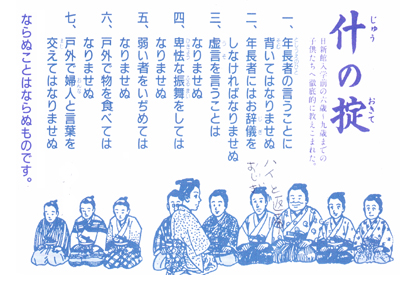 什の掟
じゅう おきて
日新館入学前の六歳〜九歳までの
子供たちへ徹底的に教えこまれた。
一、年長者の言うことに
背いてはなりませぬ
二、年長者にはお辞儀を
しなければなりませぬ
三、虚言を言うことは
なりませぬ
四、卑怯な振舞をしては
なりませぬ
五、弱い者をいぢめては
なりませぬ
六、戸外で物を食べては
なりませぬ
七、戸外で婦人と言葉を
交えてはなりませぬ
ならぬことはならぬものです。
ハイと返